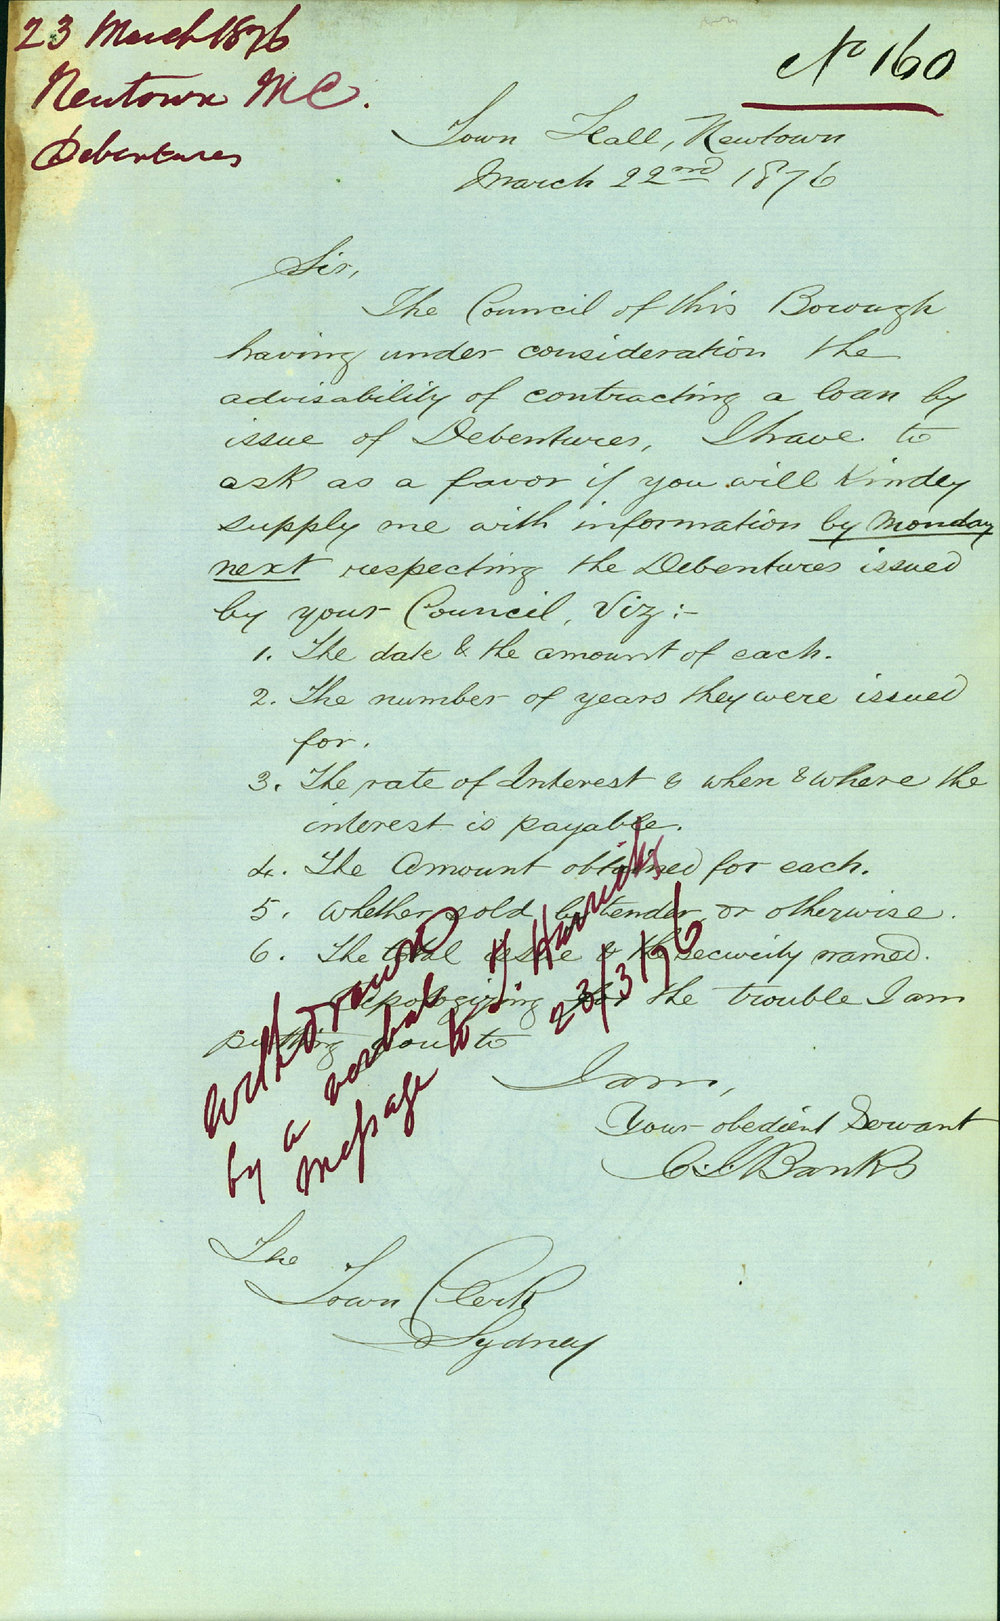 23 March 1876
Newtown M.C.
Debentures
No 160
Town Hall, Newtown
March 22nd 1876
Sir,
The Council of this Borough
having under consideration the
advisability of contracting a loan by
issue of Debentures, I have to
ask as a favor if you will kindly
supply me with information by Monday
next respecting the Debentures issued
by your Council, Viz:-
1. The date & the amount of each.
2. The number of years they were issued
for.
3. The rate of Interest & when & where the
interest is payable.
4. The Amount obtained for each.
5. Whether sold by tender or otherwise.
6. The total issue & the security named.
Apologizing for the trouble I am
putting you to
I am,
Your obedient Servant
Banks
The
Town Clerk
Sydney
withdrawn
by a verbal
message to
23/3/76